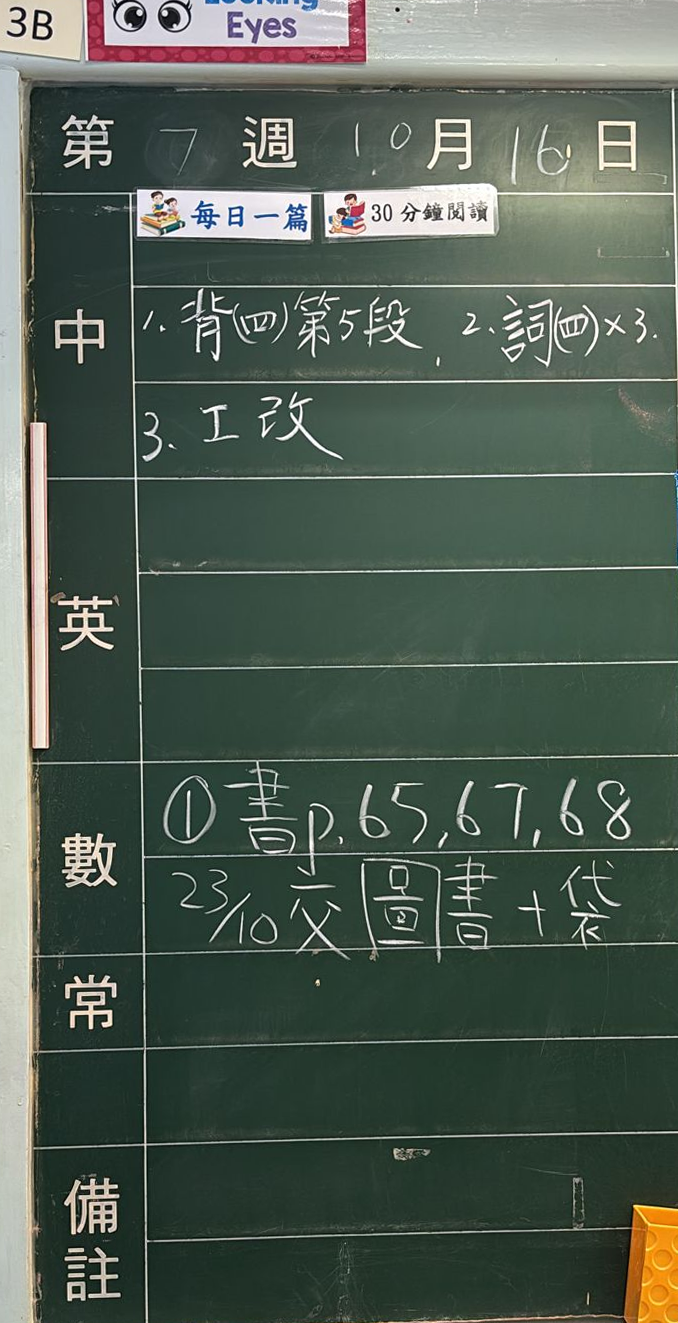 3B
Looking
Eyes
第 7 週 10月 16日
每日一篇 30分鐘閱讀
中
1. 背(四)第5段, 2. 詞(四)×3.
3. 工改
英
數
① 書p.65,67,68
23/10 交圖書+袋
常
備註